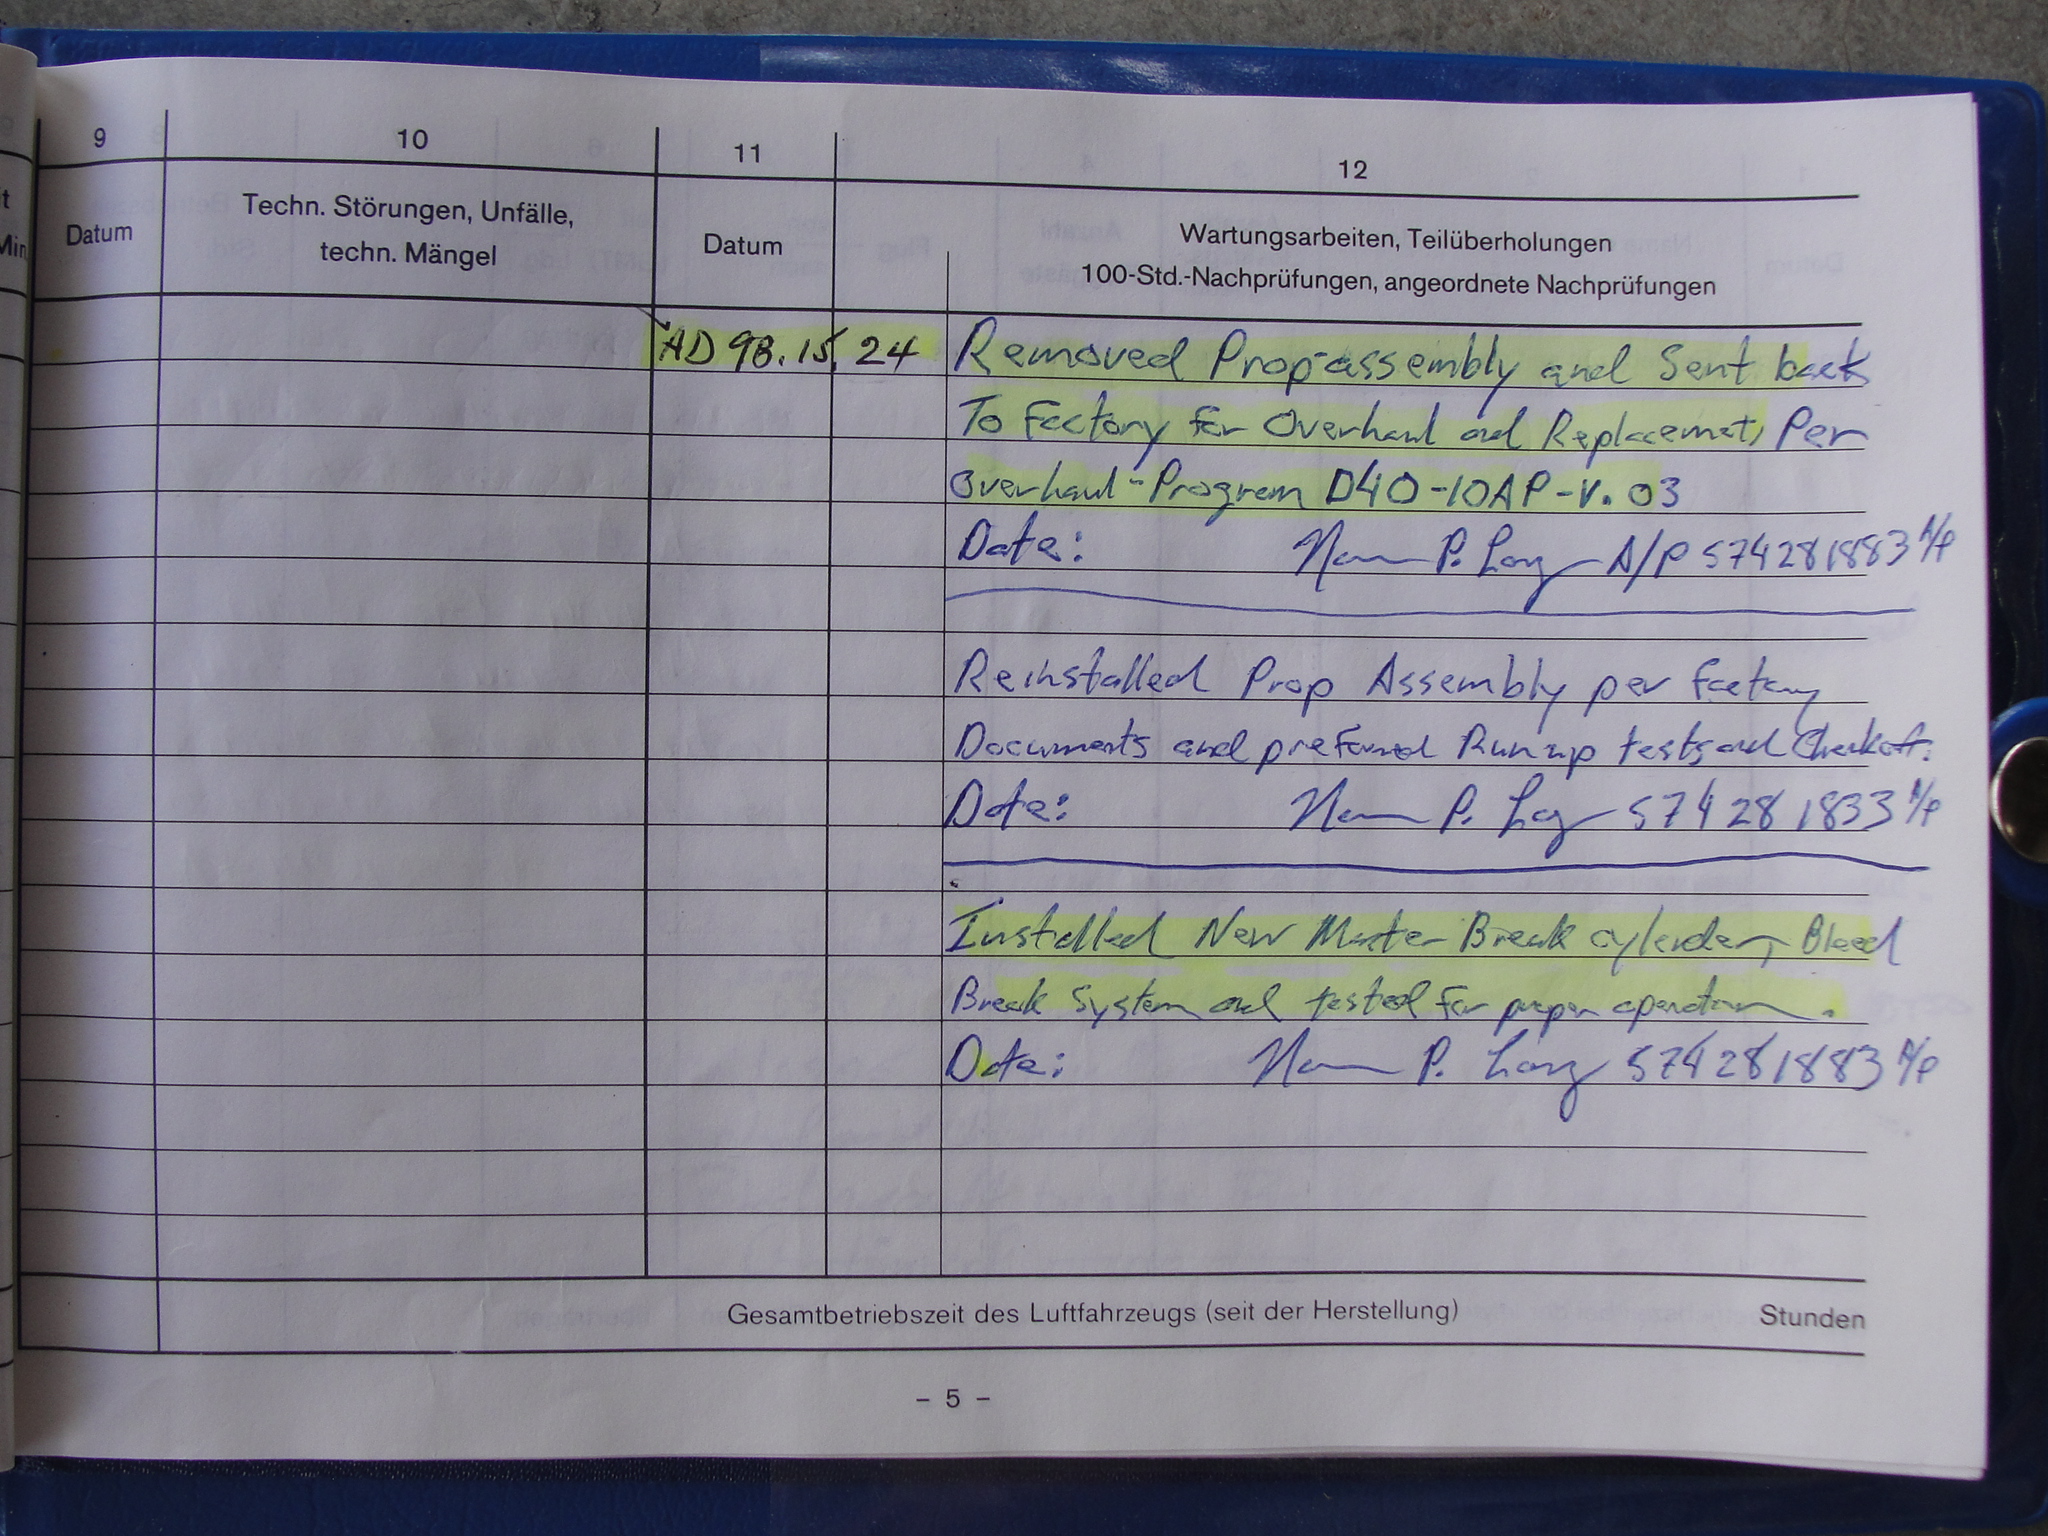 9 10 11 12
t
Min.
Datum
Techn. Störungen, Unfälle,
techn. Mängel
Datum
Wartungsarbeiten, Teilüberholungen
100-Std.-Nachprüfungen, angeordnete Nachprüfungen
AD 98.15.24 Removed Prop-assembly and Sent back
To Factory for Overhaul and Replacement, Per
Overhaul-Program D40-10AP-V.03
Date: P. A/P 574281883 A/P
Reinstalled Prop Assembly per factory
Documents and preformed Runup tests and Checkoff.
Date: P. 574281833 A/P
Installed New Master Break cylender, Bleed
Break System and tested for proper operation.
Date: P. 574281883 A/P
Gesamtbetriebszeit des Luftfahrzeugs (seit der Herstellung) Stunden
– 5 –